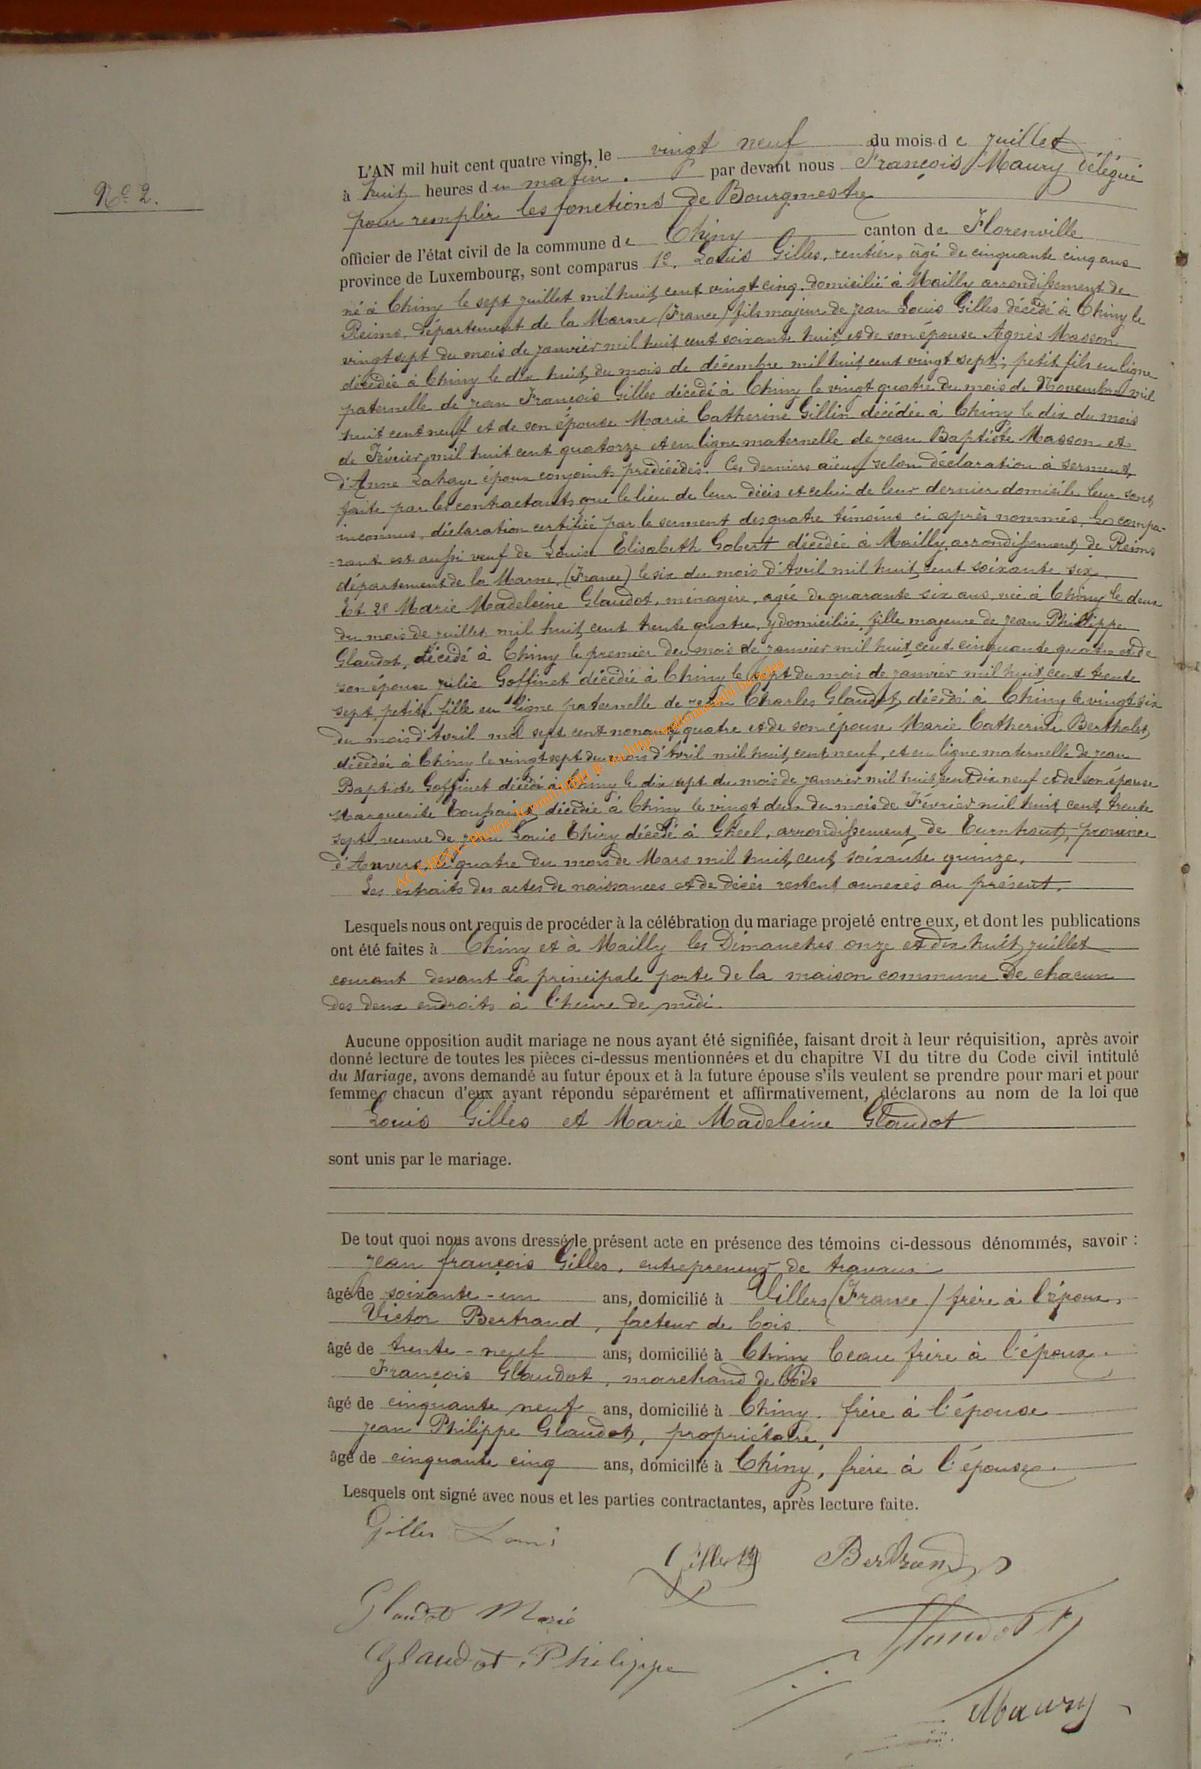 N° 2.
L'AN mil huit cent quatre vingt, le vingt neuf du mois de juillet
à huit heures du matin. par devant nous François Maury délégué
pour remplir les fonctions de Bourgmestre
officier de l'état civil de la commune de Chiny canton de Florenville
province de Luxembourg, sont comparus 1°. Louis Gilles, rentier, âgé de cinquante cinq ans
né à Chiny le sept juillet mil huit cent vingt cinq, domicilié à Mailly arrondissement de
Reims, département de la Marne (France) fils majeur de Jean Louis Gilles décédé à Chiny le
vingt sept du mois de janvier mil huit cent soixante huit, et de son épouse Agnès Masson
décédée à Chiny le dix huit du mois de décembre mil huit cent vingt sept; petit fils en ligne
paternelle de Jean François Gilles décédé à Chiny le vingt quatre du mois de novembre mil
huit cent neuf et de son épouse Marie Catherine Gillin décédée à Chiny le dix du mois
de Février mil huit cent quatorze et en ligne maternelle de Jean Baptiste Masson et
d'Anne Lahaye époux conjoints prédécédés. Ces derniers aïeux selon déclaration à serment
faite par les contractants que le lieu de leur décès et celui de leur dernier domicile leur sont
inconnus, déclaration certifiée par le serment des quatre témoins ci après nommés. Le compa-
-rant est aussi veuf de Louise Elisabeth Gobert décédée à Mailly, arrondissement de Reims
département de la Marne, (France) le six du mois d'Avril mil huit cent soixante six.
Et 2° Marie Madeleine Glaudot, ménagère, agée de quarante six ans, née à Chiny le deux
du mois de juillet mil huit cent trente quatre, y domiciliée, fille majeure de Jean Philippe
Glaudot, décédé à Chiny le premier du mois de janvier mil huit cent cinquante quatre et de
son épouse Julie Goffinet décédée à Chiny le sept du mois de janvier mil huit cent trente
sept, petite fille en ligne paternelle de Jean Charles Glaudot, décédé à Chiny le vingt six
du mois d'Avril mil sept cent nonante quatre et de son épouse Marie Catherine Bertholet,
décédée à Chiny le vingt sept du mois d'Avril mil huit cent neuf, et en ligne maternelle de Jean
Baptiste Goffinet décédé à Chiny le dix sept du mois de janvier mil huit cent dix neuf et de son épouse
Marguerite Toussaint décédée à Chiny le vingt deux du mois de Février mil huit cent trente
sept, veuve de Jean Louis Thiry décédé à Gheel, arrondissement de Turnhout, province
d'Anvers, le quatre du mois de Mars mil huit cent soixante quinze.
Les extraits des actes de naissances et de décès restent annexés au présent.
Lesquels nous ont requis de procéder à la célébration du mariage projeté entre eux, et dont les publications
ont été faites à Chiny et à Mailly les Dimanches onze et dix huit juillet
courant devant la principale porte de la maison commune de chacun
des deux endroits à l'heure de midi.
Aucune opposition audit mariage ne nous ayant été signifiée, faisant droit à leur réquisition, après avoir
donné lecture de toutes les pièces ci-dessus mentionnées et du chapitre VI du titre du Code civil intitulé
du Mariage, avons demandé au futur époux et à la future épouse s'ils veulent se prendre pour mari et pour
femme, chacun d'eux ayant répondu séparément et affirmativement, déclarons au nom de la loi que
Louis Gilles et Marie Madeleine Glaudot
sont unis par le mariage.
De tout quoi nous avons dressé le présent acte en présence des témoins ci-dessous dénommés, savoir :
Jean françois Gilles, entrepreneur de travaux
âgé de soixante-un ans, domicilié à Villers (France) frère à l'époux,
Victor Bertrand, facteur de bois
âgé de trente-neuf ans, domicilié à Chiny beau frère à l'époux.
François Glaudot, marchand de bois
âgé de cinquante neuf ans, domicilié à Chiny. frère à l'épouse
Jean Philippe Glaudot, propriétaire,
âgé de cinquante cinq ans, domicilié à Chiny, frère à l'épouse.
Lesquels ont signé avec nous et les parties contractantes, après lecture faite.
Gilles Louis
Gilles Bertrand
Glaudot Marie
Glaudot
Glaudot, Philippe
Maury